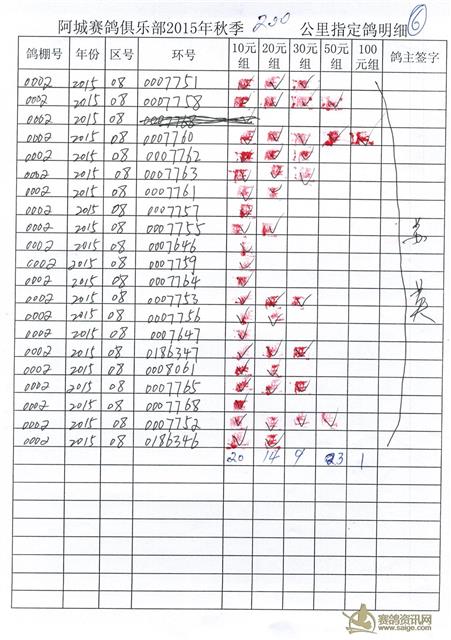 阿城赛鸽俱乐部2015年秋季 200 公里指定鸽明细 6
鸽棚号 年份 区号 环号 10元组 20元组 30元组 50元组 100元组 鸽主签字
0002 2015 08 0007751 ✓ ✓ ✓
0002 2015 08 0007758 ✓ ✓ ✓ ✓
0002 2015 08 0007768
0002 2015 08 0007760 ✓ ✓ ✓ ✓ ✓
0002 2015 08 0007762 ✓ ✓ ✓
0002 2015 08 0007763 ✓ ✓ ✓
0002 2015 08 0007761 ✓ ✓
0002 2015 08 0007757 ✓
0002 2015 08 0007755 ✓ ✓
0002 2015 08 0007646 ✓
0002 2015 08 0007759 ✓
0002 2015 08 0007764 ✓
0002 2015 08 0007753 ✓ ✓ ✓
0002 2015 08 0007756 ✓ ✓
0002 2015 08 0007647 ✓
0002 2015 08 0186347 ✓ ✓ ✓
0002 2015 08 0008061 ✓ ✓
0002 2015 08 0007765 ✓ ✓ ✓
0002 2015 08 0007768 ✓
0002 2015 08 0007752 ✓ ✓ ✓ ✓
0002 2015 08 0186346 ✓ ✓
20 14 9 3 1
赛鸽资讯网
www.saige.com